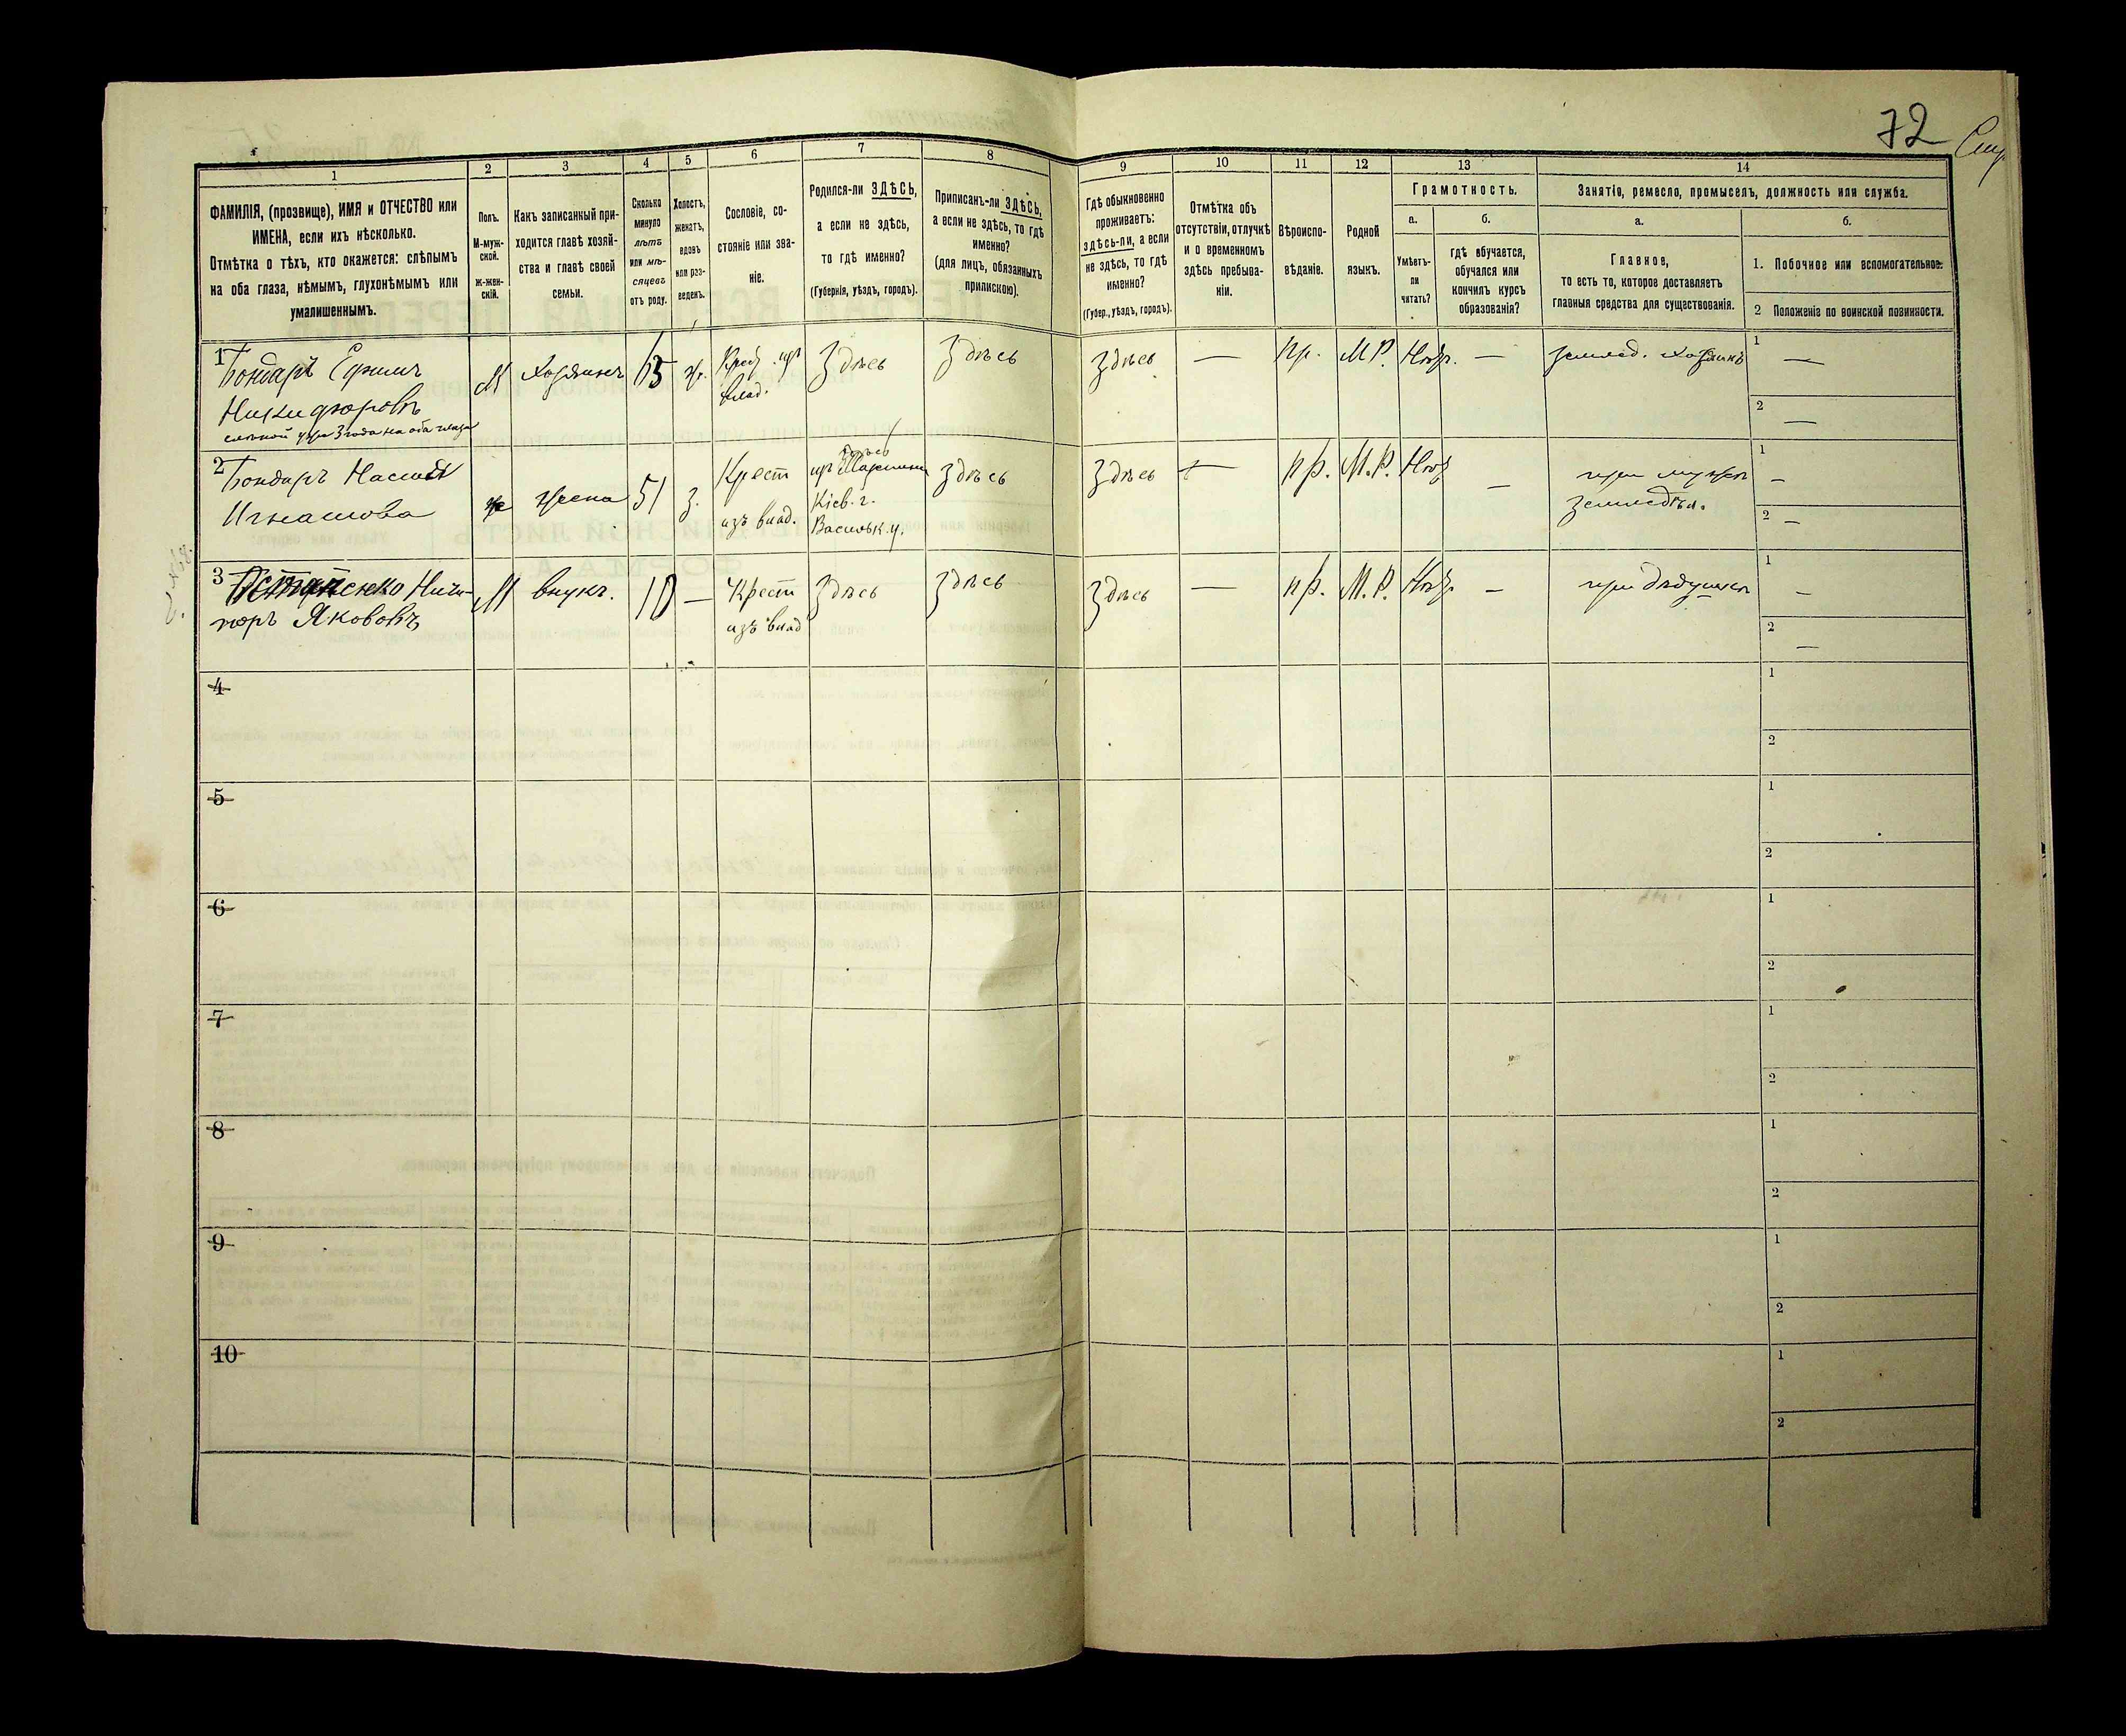 72
1
2
3
4
5
6
7
8
9
10
11
12
13
14
ФАМИЛІЯ, (прозвище), ИМЯ и ОТЧЕСТВО или
ИМЕНА, если ихъ нѣсколько.
Отмѣтка о тѣхъ, кто окажется: слѣпымъ
на оба глаза, нѣмымъ, глухонѣмымъ или
умалишеннымъ.
Полъ.
М-муж-
ской.
Ж-жен-
скій.
Какъ записанный при-
ходится главѣ хозяй-
ства и главѣ своей
семьи.
Сколько
минуло
лѣтъ
или мѣ-
сяцевъ
отъ роду.
Холостъ,
женатъ,
вдовъ
или раз-
веденъ.
Сословіе, со-
стояніе или зва-
ніе.
Родился-ли ЗДѢСЬ,
а если не здѣсь,
то гдѣ именно?
(Губернія, уѣздъ, городъ).
Приписанъ-ли ЗДѢСЬ,
а если не здѣсь, то гдѣ
именно?
(для лицъ, обязанныхъ
припискою).
Гдѣ обыкновенно
проживаетъ:
здѣсь-ли, а если
не здѣсь, то гдѣ
именно?
(Губер., уѣздъ, городъ).
Отмѣтка объ
отсутствіи, отлучкѣ
и о временномъ
здѣсь пребыва-
ніи.
Вѣроиспо-
вѣданіе.
Родной
языкъ.
Грамотность.
а.
Умѣетъ-
ли
читать?
б.
гдѣ обучается,
обучался или
кончилъ курсъ
образованія?
Занятіе, ремесло, промыселъ, должность или служба.
а.
Главное,
то есть то, которое доставляетъ
главныя средства для существованія.
б.
1. Побочное или вспомогательное.
2 Положеніе по воинской повинности.
1 Бондарь Ефимъ
Никифоровъ
М
хозяинъ
65
ж.
влад.
Здѣсь
Здѣсь
Здѣсь
—
пр.
М.Р.
—
землед. хозяинъ
1 —
2 —
2 Бондарь
Игнатова
ж
жена
51
з.
Крест
изъ влад.
Кіев. г.
Васильк. у.
Здѣсь
Здѣсь
пр.
М.Р.
—
при мужѣ
1 —
2 —
3 Остапенко Ники-
форъ Якововъ
М
внукъ.
10
—
Крест
изъ влад
Здѣсь
Здѣсь
Здѣсь
—
пр.
М.Р.
—
при дѣдушкѣ
1 —
2 —
4
1
2
5
1
2
6
1
2
7
1
2
8
1
2
9
1
2
10
1
2